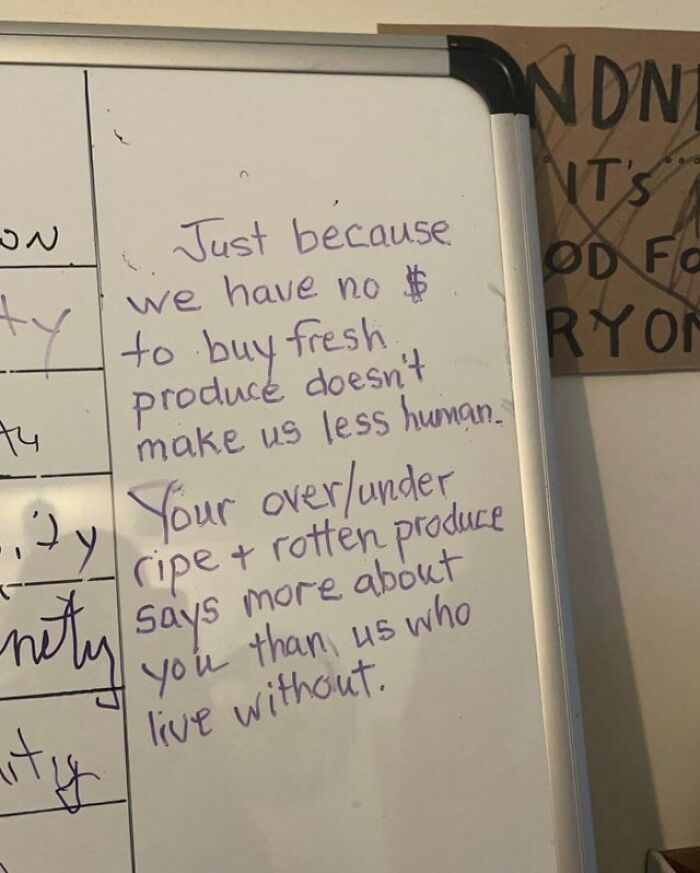 Just because
we have no $
to buy fresh
produce doesn't
make us less human.
Your over/under
ripe + rotten produce
says more about
you than us who
live without.
ON
ty
ty
nety
NDN
IT'S
OD FO
RYON